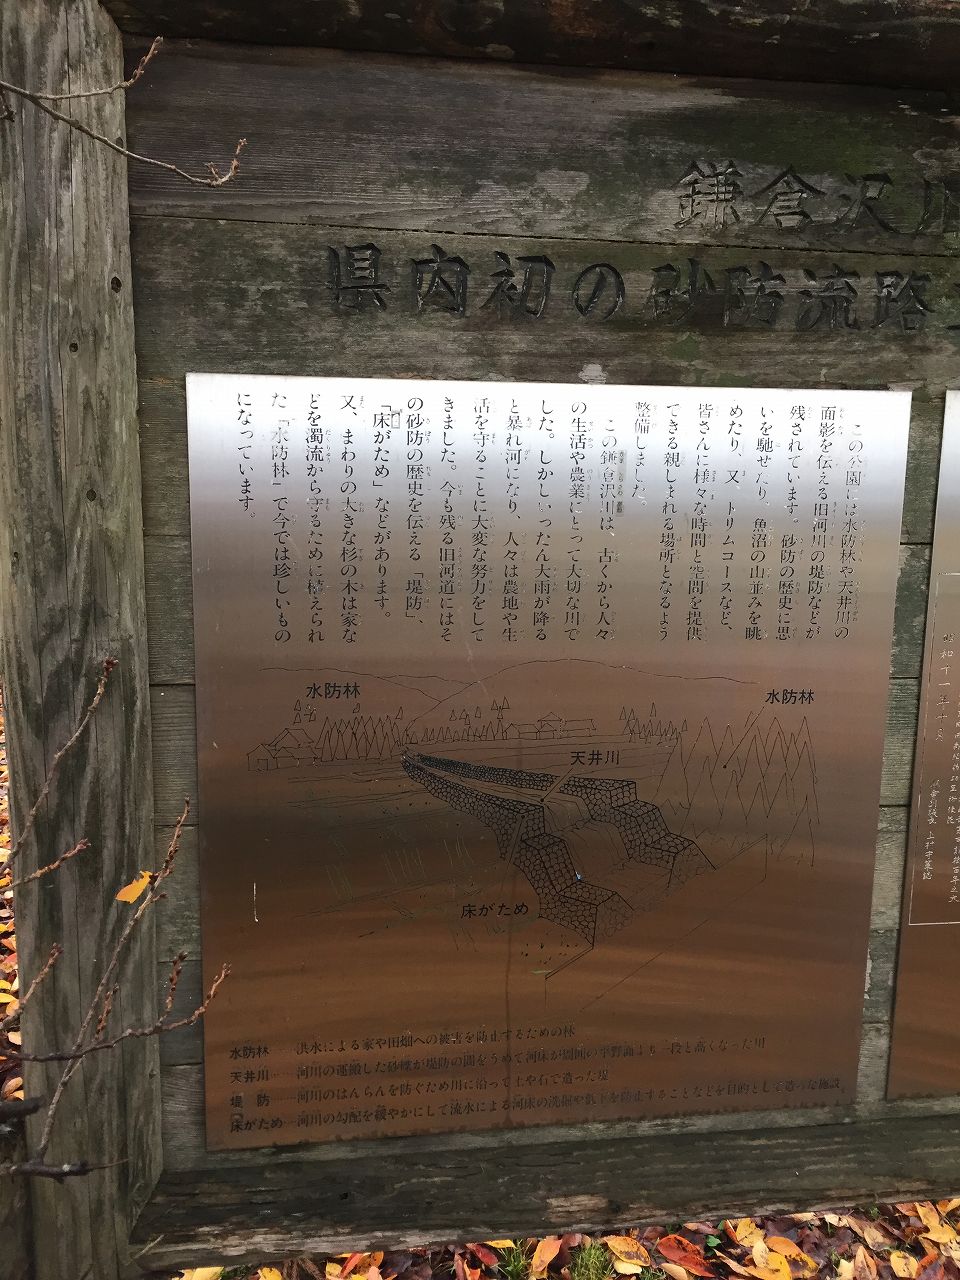 鎌倉沢川
県内初の砂防流路
この公園には水防林や天井川の
面影を伝える旧河川の堤防などが
残されています。砂防の歴史に思
いを馳せたり、魚沼の山並みを眺
めたり、又、トリムコースなど、
皆さんに様々な時間と空間を提供
できる親しまれる場所となるよう
整備しました。
この鎌倉沢川は、古くから人々
の生活や農業にとって大切な川で
した。しかしいったん大雨が降る
と暴れ河になり、人々は農地や生
活を守ることに大変な努力をして
きました。今も残る旧河道にはそ
の砂防の歴史を伝える「堤防」
「床がため」などがあります。
又、まわりの大きな杉の木は家な
どを濁流から守るために植えられ
た「水防林」で今では珍しいもの
になっています。
水防林
水防林
天井川
床がため
水防林……洪水による家や田畑への被害を防止するための林
天井川……河川の運搬した砂礫が堤防の間をうめて河床が周囲の平野面より一段と高くなった川
堤　防……河川のはんらんを防ぐため川に沿って土や石で造った堤
床がため…河川の勾配を緩やかにして流水による河床の洗掘や低下を防止することなどを目的として造った施設。
昭和十一年十月
上村